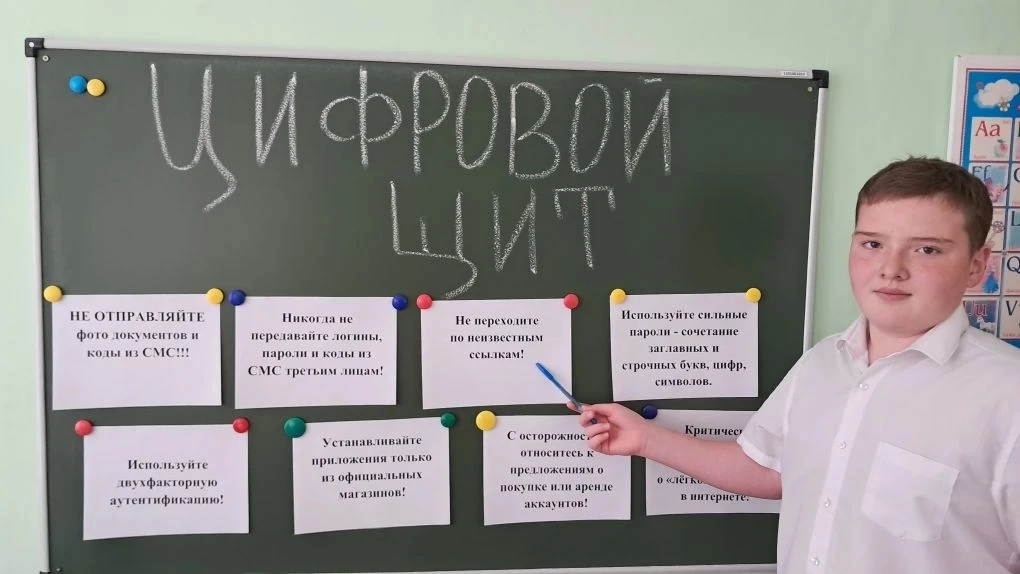 ЦИФРОВОЙ
ЩИТ
НЕ ОТПРАВЛЯЙТЕ
фото документов и
коды из СМС!!!
Никогда не
передавайте логины,
пароли и коды из
СМС третьим лицам!
Не переходите
по неизвестным
ссылкам!
Используйте сильные
пароли - сочетание
заглавных и
строчных букв, цифр,
символов.
Используйте
двухфакторную
аутентификацию!
Устанавливайте
приложения только
из официальных
магазинов!
С
относитесь к
предложениям о
покупке или аренде
аккаунтов!
о
в интернете.
Aa